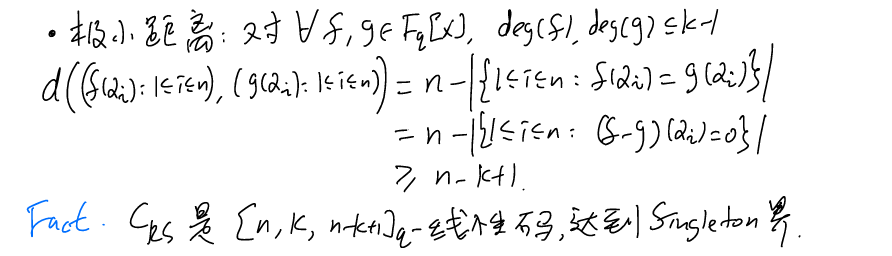 • 极小距离: 对 ∀ f, g ∈ F_q[x], deg(f), deg(g) ≤ k-1
d((f(α_i): 1≤i≤n), (g(α_i): 1≤i≤n)) = n - |{1≤i≤n : f(α_i) = g(α_i)}|
= n - |{1≤i≤n : (f-g)(α_i)=0}|
≥ n-k+1.
Fact. C_RS 是 [n, k, n-k+1]_q-线性码, 达到 Singleton 界.